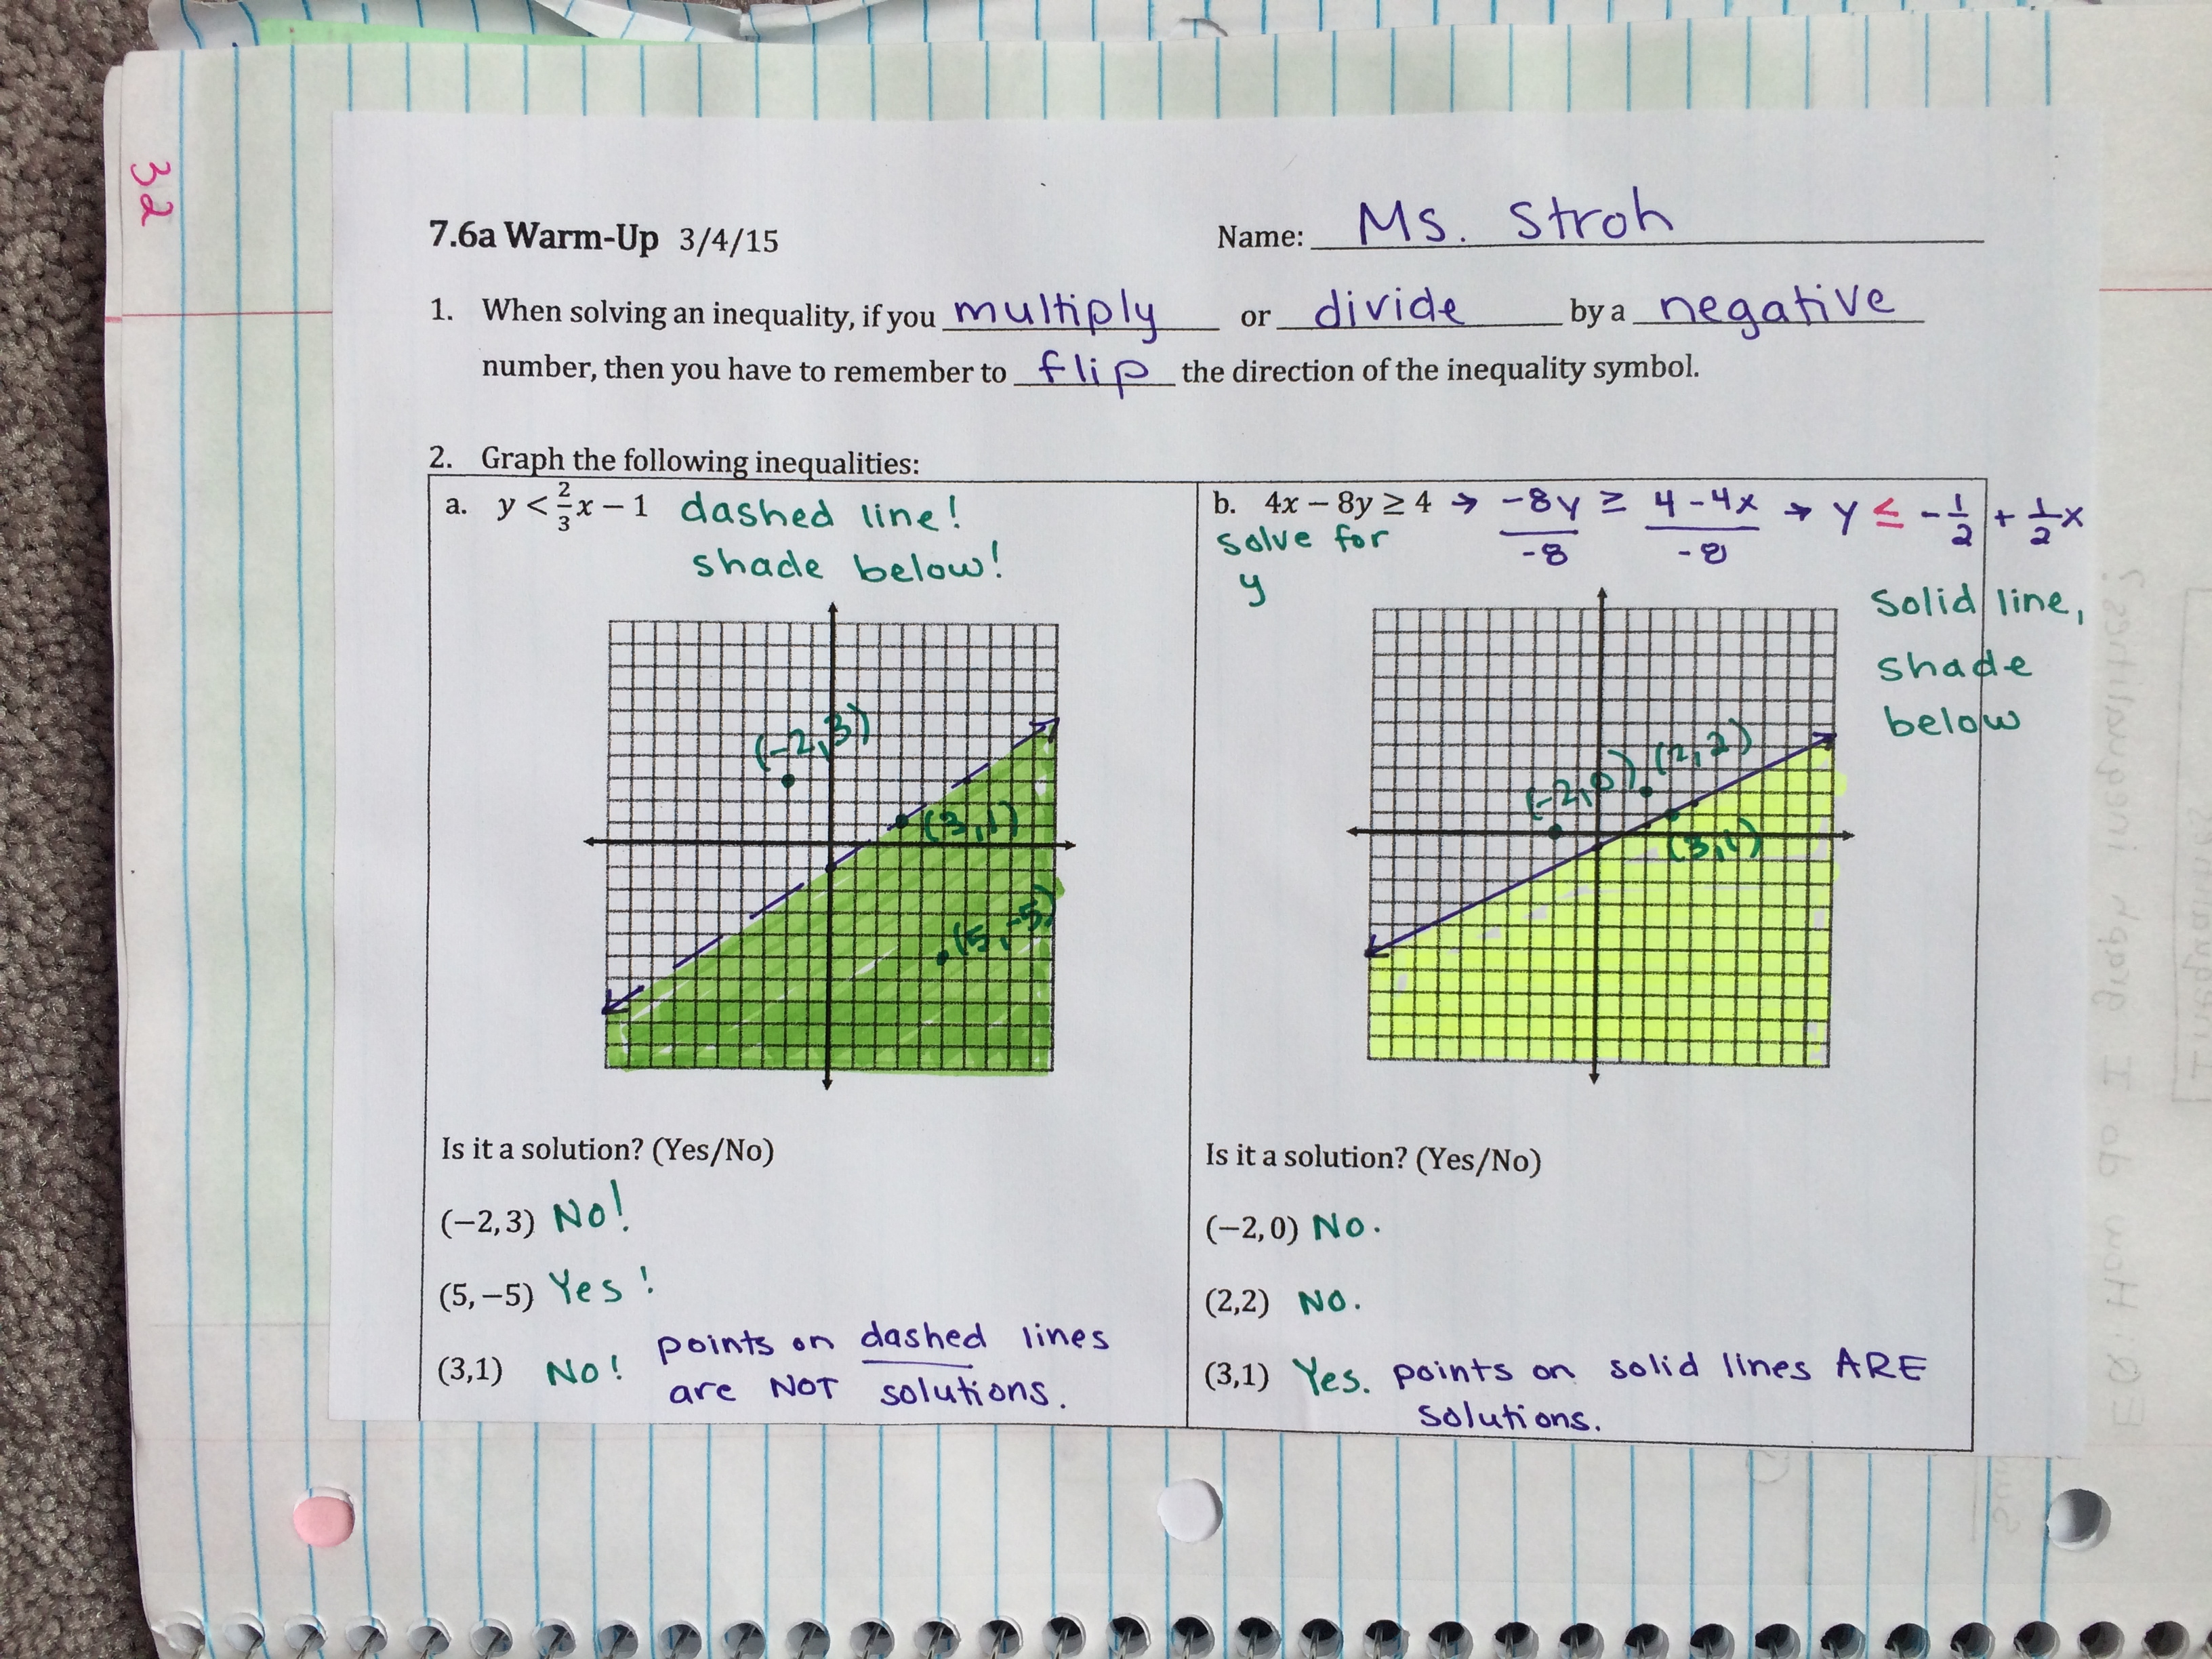 32
7.6a Warm-Up 3/4/15 Name: Ms. Stroh
1. When solving an inequality, if you multiply or divide by a negative
number, then you have to remember to flip the direction of the inequality symbol.
2. Graph the following inequalities:
a. y < 2/3 x – 1 dashed line!
shade below!
b. 4x – 8y ≥ 4 → -8y/-8 ≥ 4-4x/-8 → y ≤ -1/2 + 1/2 x
solve for
y
Solid line,
shade
below
(-2,3)
(3,1)
(5,-5)
(-2,0) (2,2)
(3,1)
Is it a solution? (Yes/No)
(−2,3) No!
(5,−5) Yes!
(3,1) No! points on dashed lines
are NOT solutions.
Is it a solution? (Yes/No)
(−2,0) No.
(2,2) No.
(3,1) Yes. points on solid lines ARE
solutions.
EQ: How do I graph inequalities?